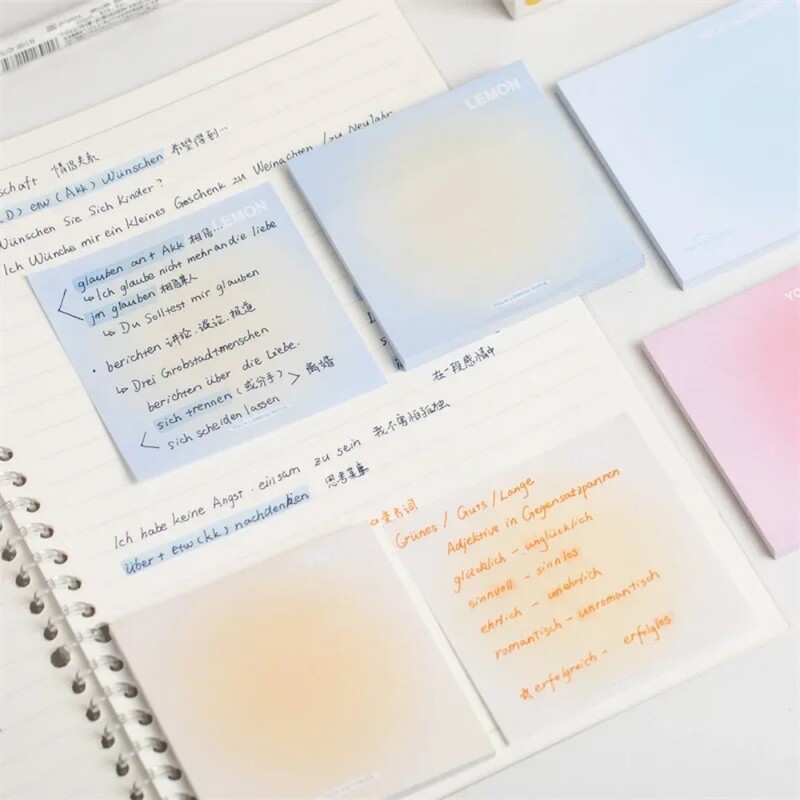 schaft 情侣关系
D) etw (Akk) Wünschen 希望得到…
Wünschen Sie Sich Kinder?
Ich Wünche mir ein kleines Geschenk zu Weinachten /zu Neujahr
LEMON
glauben an + Akk 相信…
↳ Ich glaube nicht mehr an die liebe
jm glauben 相信某人
↳ Du Solltest mir glauben
• berichten 讲论.谈论.报道
↳ Drei Grobstadtmenschen
berichten über die Liebe.
sich trennen (或分手) > 离婚
< sich scheiden lassen
LEMON
在一段感情中
Ich habe keine Angst. einsam zu sein 我不害怕孤独
über + etw(kk) nachdenken 思考某事
Grünes / Guts / Lange
Adjektive in Gegensatzpanren
glücklich - unglücklich
sinnvoll - sinnlos
ehrlich - unehrlich
romantisch - unromantisch
☆ erfolgreich - erfolglos
YO